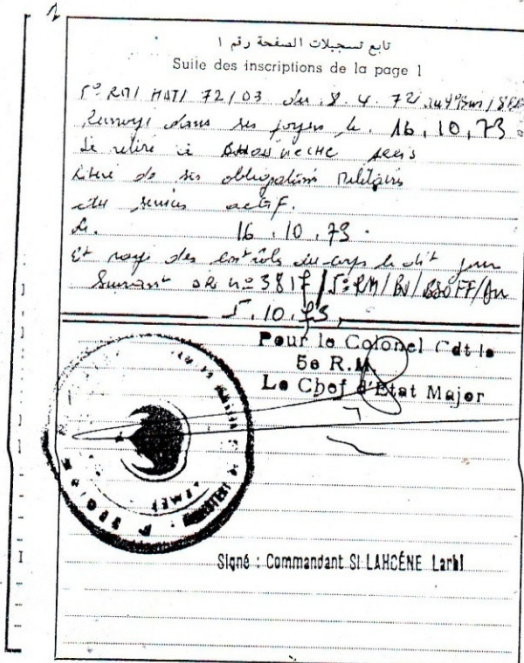 تابع تسجيلات الصفحة رقم ١
Suite des inscriptions de la page 1
5° RM/ MAT/ 72/03 du 8.4.72
Renvoyé dans ses foyers le 16,10,73
Se retire à
Libéré de ses obligations Militaires
du service actif.
le. 16.10.73.
Et rayé des contrôles du corps le dit jour
Suivant OR n° 3817/5°RM/
5.10.73
Pour le Colonel Cdt la
5e R.M.
Le Chef d'Etat Major
Signé : Commandant SI LAHCÉNE Larbi